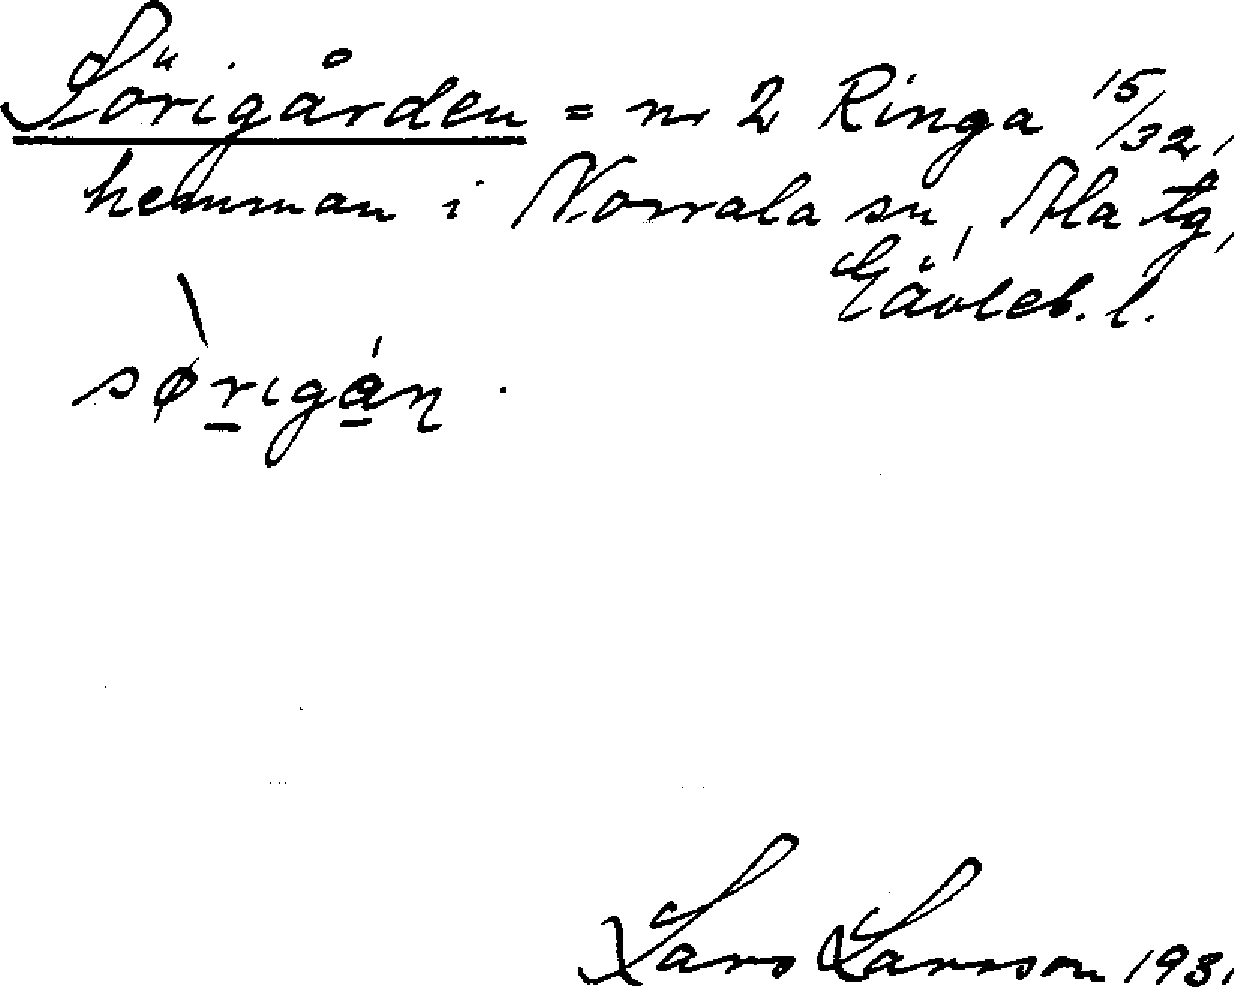 Sörigården = nr 2 Ringa 15/32,
hemman i Norrala sn, Ala tg,
Gävleb. l.
sø̀rigán.
Lars Larsson 1931